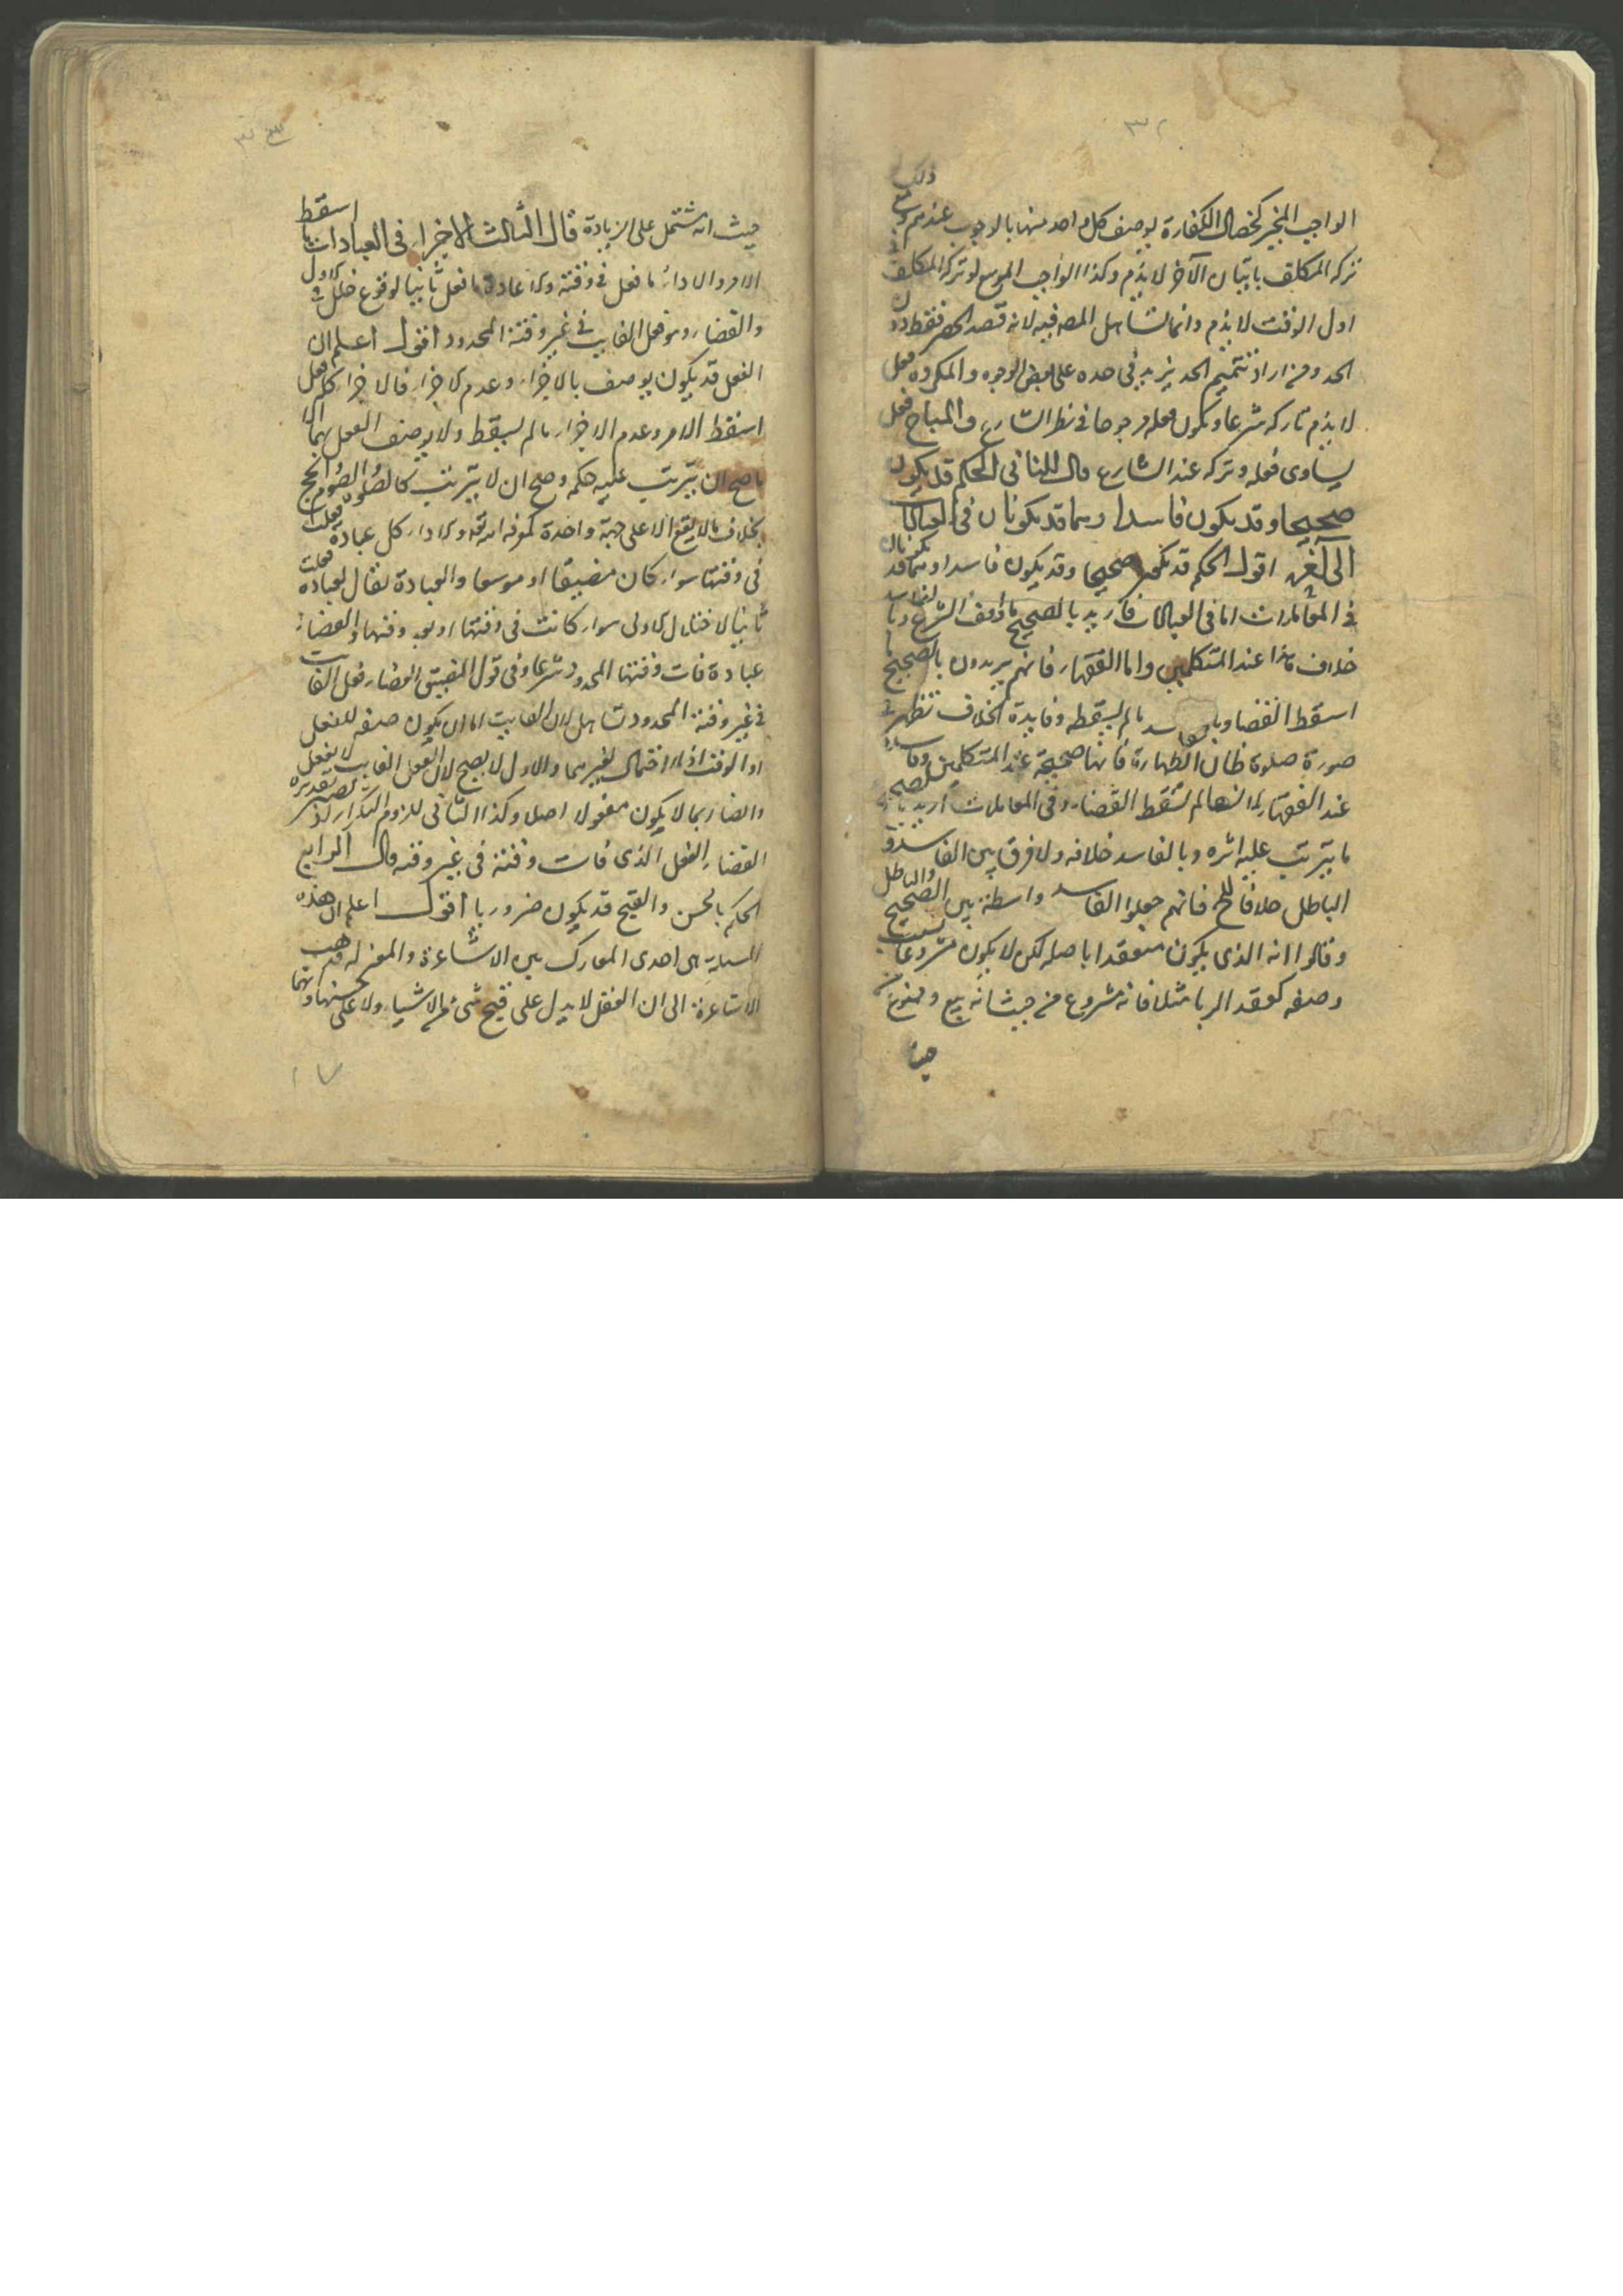 ٣٢
ذلك
الواجب المخير كخصال الكفارة يوصف كل واحد منها بالوجوب عندهم ومع
تركه المكلف باتيان الآخر لا يذم وكذا الواجب الموسع لو تركه المكلف في
اول الوقت لا يذم وانما تساهل المصـ فيه لانه قصد الحصر فقط دون
الحد ومن اراد تتميم الحد يزيد في حده على بعض الوجوه والمكروه فعل
لا يذم تاركه شرعا ويكون فعله مرجوحا في نظر الشارع والمباح فعل
يساوى فعله وتركه عند الشارع قال الثاني الحكم قد يكون
صحيحا وقد يكون فاسدا وهما قد يكونان في العبادات
الى آخره اقول الحكم قد يكون صحيحا وقد يكون فاسدا وهما قد يكونان
في المعاملات اما في العبادات فاريد بالصحيح ما وافق الشرع وبالفاسد
خلاف هذا عند المتكلمين واما الفقهاء فانهم يريدون بالصحيح ما
اسقط القضا وبالفاسد ما لم يسقطه وفايدة الخلاف تظهر في
صورة صلوة ظان الطهارة فانها صحيحة عند المتكلمين وفاسدة
عند الفقهاء لانها لم تسقط القضاء وفي المعاملات اريد بالصحيح
ما يترتب عليه اثره وبالفاسد خلافه ولا فرق بين الفاسد و
الباطل خلافا للح فانهم جعلوا الفاسد واسطة بين الصحيح والباطل
وقالوا انه الذى يكون منعقدا باصله لكن لا يكون مشروعا بسبب
وصفه كعقد الربا مثلا فانه مشروع من حيث انه بيع وممنوع من
حيث
٣٣
حيث انه مشتمل على الزيادة قال الثالث الاجزاء في العبادات ما اسقط
الامر والاداء ما فعل في وقته والاعادة ما فعل ثانيا لوقوع خلل في الاول
والقضاء وهو فعل الفايت في غير وقته المحدود اقول اعلم ان
الفعل قد يكون يوصف بالاجزاء وعدم الاجزاء فالاجزاء كل فعل
اسقط الامر وعدم الاجزاء ما لم يسقط ولا يوصف الفعل بهما الا
ما صح ان يترتب عليه حكمه وصح ان لا يترتب كالصلوة والصوم والحج
بخلاف ما لا يقع الا على جهة واحدة كمعرفة الله تعـ والاداء كل عبادة فعلت
في وقتها سواء كان مضيقا او موسعا والاعادة يقال لعبادة فعلت
ثانيا لاختلال الاولى سواء كانت في وقتها او بعد وقتها والقضاء
عبادة فات وقتها المحدود شرعا وفي قول المضيق القضاء فعل الفايت
في غير وقته المحدود تساهل لان الفايت اما ان يكون صفة للفعل
او الوقت اذ لا احتمال لغيرهما والاول لا يصح لان الفعل الفايت لا يفعل
والقضا ربما لا يكون مفعولا اصلا وكذا الثاني للزوم التكرار اذ يصير تقديره
القضاء الفعل الذى فات وقته في غير وقته قال الرابع
الحكم بالحسن والقبح قد يكون ضروريا اقول اعلم ان هذه
المسئلة هى احدى المعارك بين الاشاعرة والمعتزلة فذهب
الاشاعرة الى ان العقل لا يدل على قبح شئ من الاشياء ولا على حسنها وانما